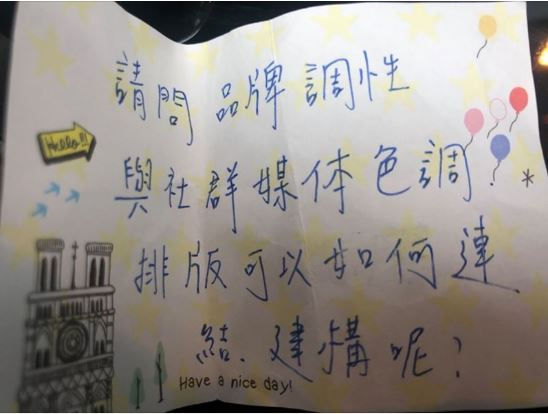 請問品牌調性
Hello!!!
與社群媒体色調.
排版可以如何連
結.建構呢?
Have a nice day!